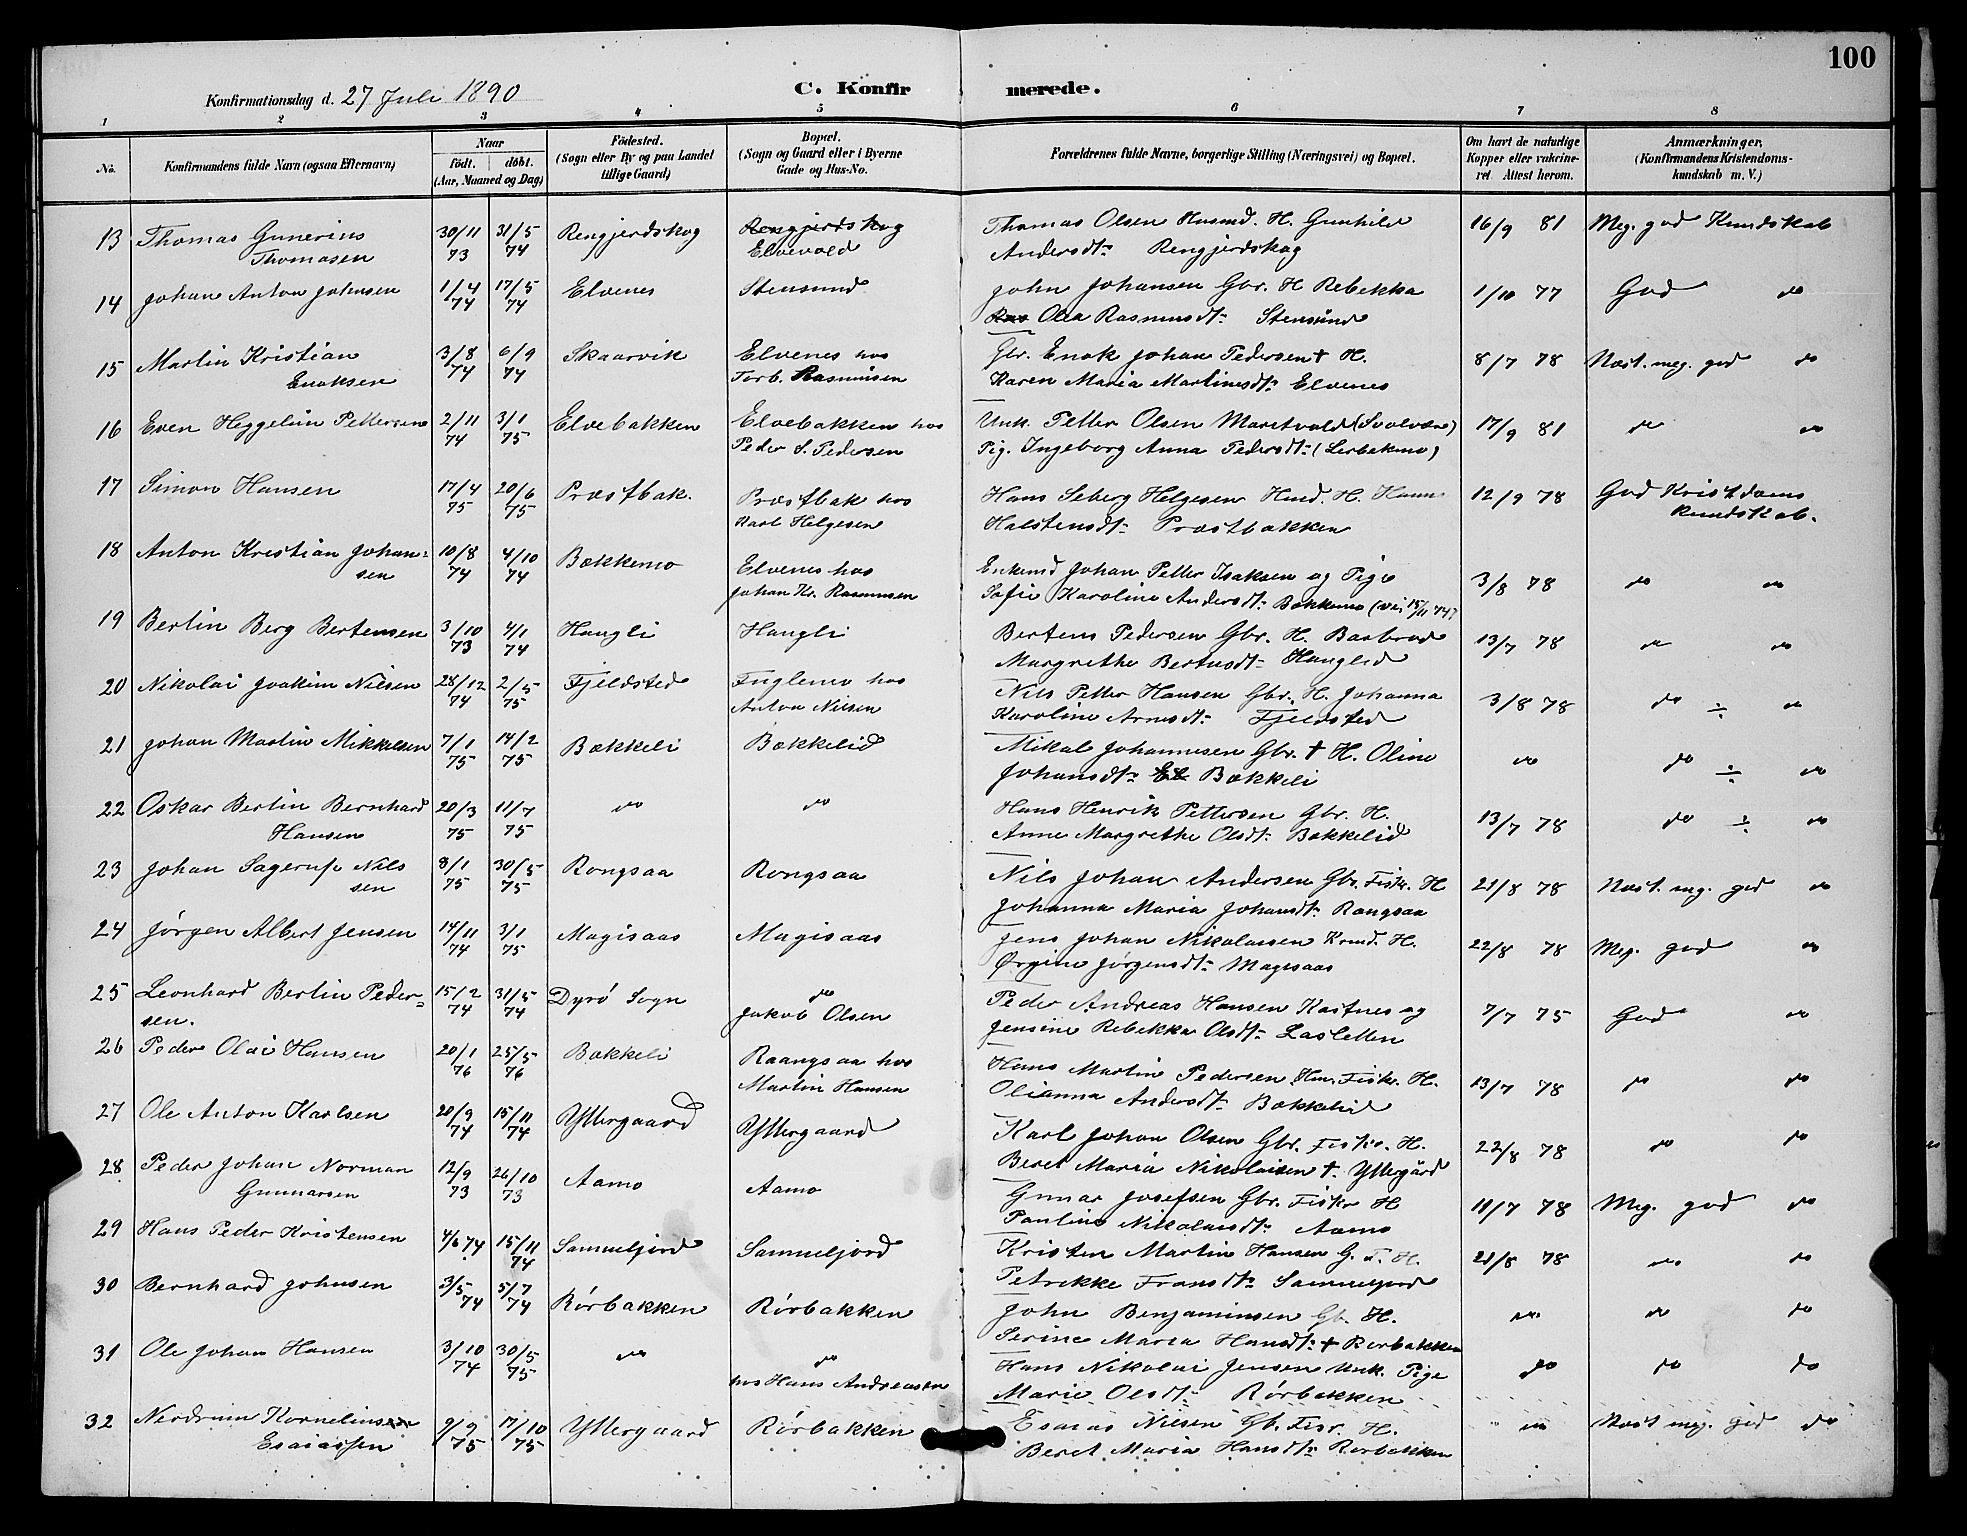 100
Konfirmationsdag d. 27 Juli 1890
C. Konfirmerede.
1 2 3 4 5 6 7 8
No.
Konfirmandens fulde Navn (ogsaa Efternavn)
Naar
födt. döbt.
(Aar, Maaned og Dag)
Födested.
(Sogn eller By og paa Landet
tillige Gaard)
Bopæl.
(Sogn og Gaard eller i Byerne
Gade og Hus-No.
Forældrenes fulde Navne, borgerlige Stilling (Næringsvei) og Bopæl.
Om havt de naturlige
Kopper eller vakcine-
ret. Attest herom.
Anmærkninger,
(Konfirmandens Kristendoms-
kundskab m. V.)
13 Thomas Gunerius 30/11 31/5 Rengjerdskog Rengjerdskog Thomas Olsen Husmd. H. Gunhild 16/9 81 Meg. god Kundskab
Thomasen 73 74 Elvevold Andersdtr Rengjerdskog
14 Johan Anton Johnsen 1/4 17/5 Elvenes Stensund John Johansen Gbr. H. Rebekka 1/10 77 God do
74 74 Ras Olea Rasmusdtr Stensund
15 Martin Kristian 3/8 6/9 Skaarvik Elvenes hos Gbr. Enok Johan Pedersen † H. 8/7 78 Næst. meg. god do
Enoksen 74 74 Torb. Rasmussen Karen Maria Martinusdtr Elvenes
16 Even Heggelun Pettersen 2/11 3/1 Elvebakken Elvebakken hos Unk. Petter Olsen (Svolvær) 17/9 81 do do
74 75 Peder S. Pedersen Pig. Ingeborg Anna Pedersdtr
17 Simon Hansen 17/4 20/6 Præstbak. Præstbak hos Hans Seberg Helgesen Husd. H. 12/9 78 God Kristdoms
75 75 Karl Helgesen Halstensdtr Præstbakken kundskab.
18 Anton Kristian Johan- 10/8 4/10 Bækkemo Elvenes hos Enkemd Johan Petter Isaksen og Pige 3/8 78 do do
sen 74 74 Johan Kr. Rasmussen Sofie Karoline Andersdtr Bækkemo
19 Bertin Berg Bertensen 3/10 4/1 Hangli Hangli Bertens Pedersen Gbr. H. Barbroe 13/7 78 do do
73 74 Margrethe Bertusdtr Hanglid
20 Nikolai Joakim Nilsen 28/12 2/5 Fjeldsted Fuglemo hos Nils Petter Hansen Gbr. H. Johanna 3/8 78 do ÷ do
74 75 Anton Nilsen Karoline Arnesdtr Fjeldsted
21 Johan Martin Mikkelsen 7/1 14/2 Bækkeli Bækkelid Mikal Johannesen Gbr. † H. Oline do do ÷ do
75 75 Johansdtr Bækkeli
22 Oskar Bertin Bernhard 20/3 11/7 do do Hans Henrik Pettersen Gbr. H. 13/7 78 do ÷ do
Hansen 75 75 Anne Margrethe Olsdtr Bækkelid
23 Johan Sagerup Nils 8/1 30/5 Rongsaa Rongsaa Nils Johan Andersen Gbr. Fisk. H 21/8 78 Næst. mg. god do
sen 75 75 Johanna Maria Johansdtr Rangsaa
24 Jørgen Albert Jensen 14/11 3/1 Magisaas Magisaas Jens Johan Nikolaisen H. 22/8 78 Meg. god do
74 75 Ørgine Jørgensdtr Magisaas
25 Leonhard Bertin Peder- 15/2 31/5 Dyrö Sogn do Peder Andreas Hansen Kastnes og 7/7 75 God do
sen. 74 74 Jakob Olsen Jensine Rebekka Olsdtr
26 Peder Olai Hansen 20/1 25/5 Bækkeli Raangsaa hos Hans Martin Pedersen Hus. Fiskr. H. 13/7 78 do do
76 76 Martin Hansen Olianna Andersdtr Bækkelid
27 Ole Anton Karlsen 20/9 15/11 Yttergaard Yttergaard Karl Johan Olsen Gbr. Fiskr. H. 22/8 78 do do
74 74 Beret Maria Nikolaisen †. Yttergård
28 Peder Johan Norman 12/9 26/10 Aamo Aamo Gunar Josefsen Gbr. Fiskr H 11/7 78 Meg. god do
Gunnarsen 73 73 Pauline Nikolaisdtr Aamo
29 Hans Peder Kristensen 4/6 74 15/11 Samueljord Samueljord Kristen Martin Hansen G. F. H. 21/8 78 do do
74 Petrikke Fransdtr Samueljord
30 Bernhard Johnsen 3/5 5/7 Rörbakken Rörbakken John Benjaminsen Gb. H. do do do
74 74 Serine Maria Hansdtr † Rörbakken
31 Ole Johan Hansen 3/10 30/5 do do Hans Nikolai Jensen Unk. Pige do do do
74 75 hos Hans Andreassen Marie Olsdtr Rörbakken
32 Nerdrum Kornelinsen 9/9 17/10 Yttergaard Rörbakken Esaias Nilsen Gb. Fisr. H. do Næst meg. god do
Esaiassen 75 75 Beret Maria Hansdtr Rörbakken